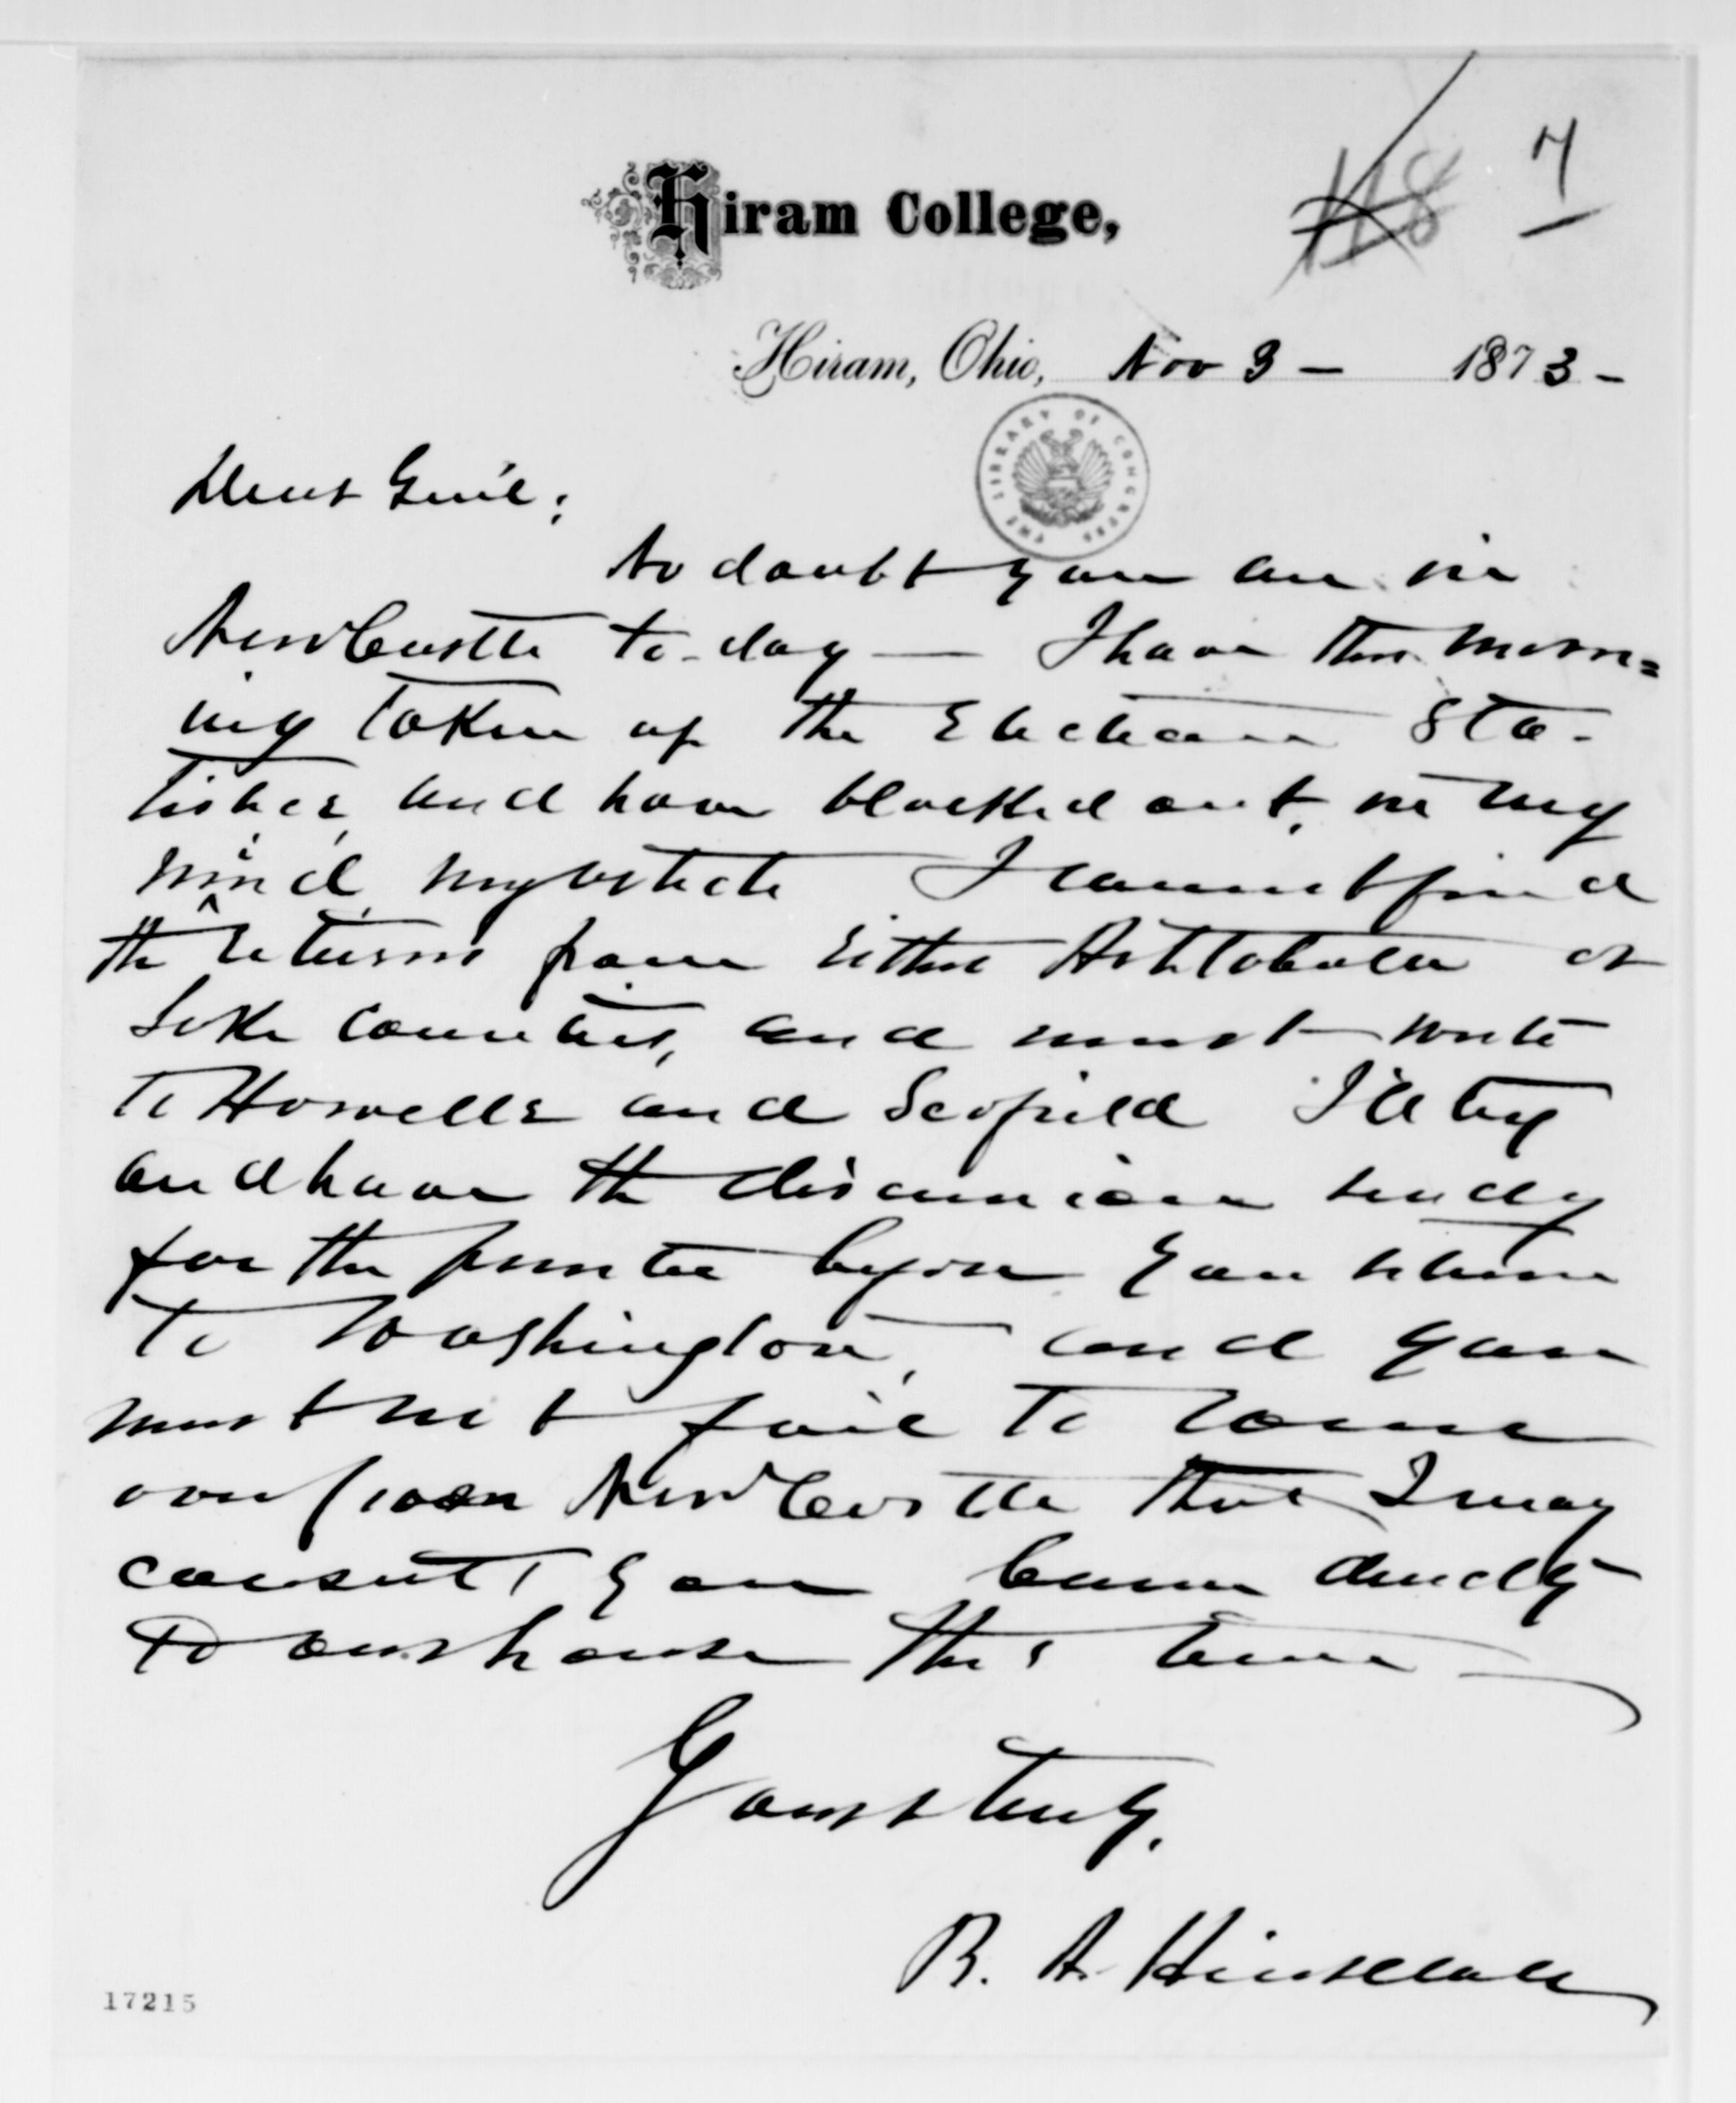 118 7
Hiram College,
Hiram, Ohio, Nov 3 - 1873 -
THE LIBRARY OF CONGRESS
Dear Gen'l:
No doubt you are in
New Castle to-day — I have this morn=
ing taken up the Election Sta-
tistics, and have blocked out, in my
mind, my article I cannot find
the returns from either Ashtabula or
Lake counties, and must write
to Howells and Scofield I'll try
and have the discussion ready
for the printer before you return
to Washington, and you
must not fail to come
over from New Castle that I may
consult you Come directly
to our house this time —
Yours truly.
B. A. Hinsdale
17215